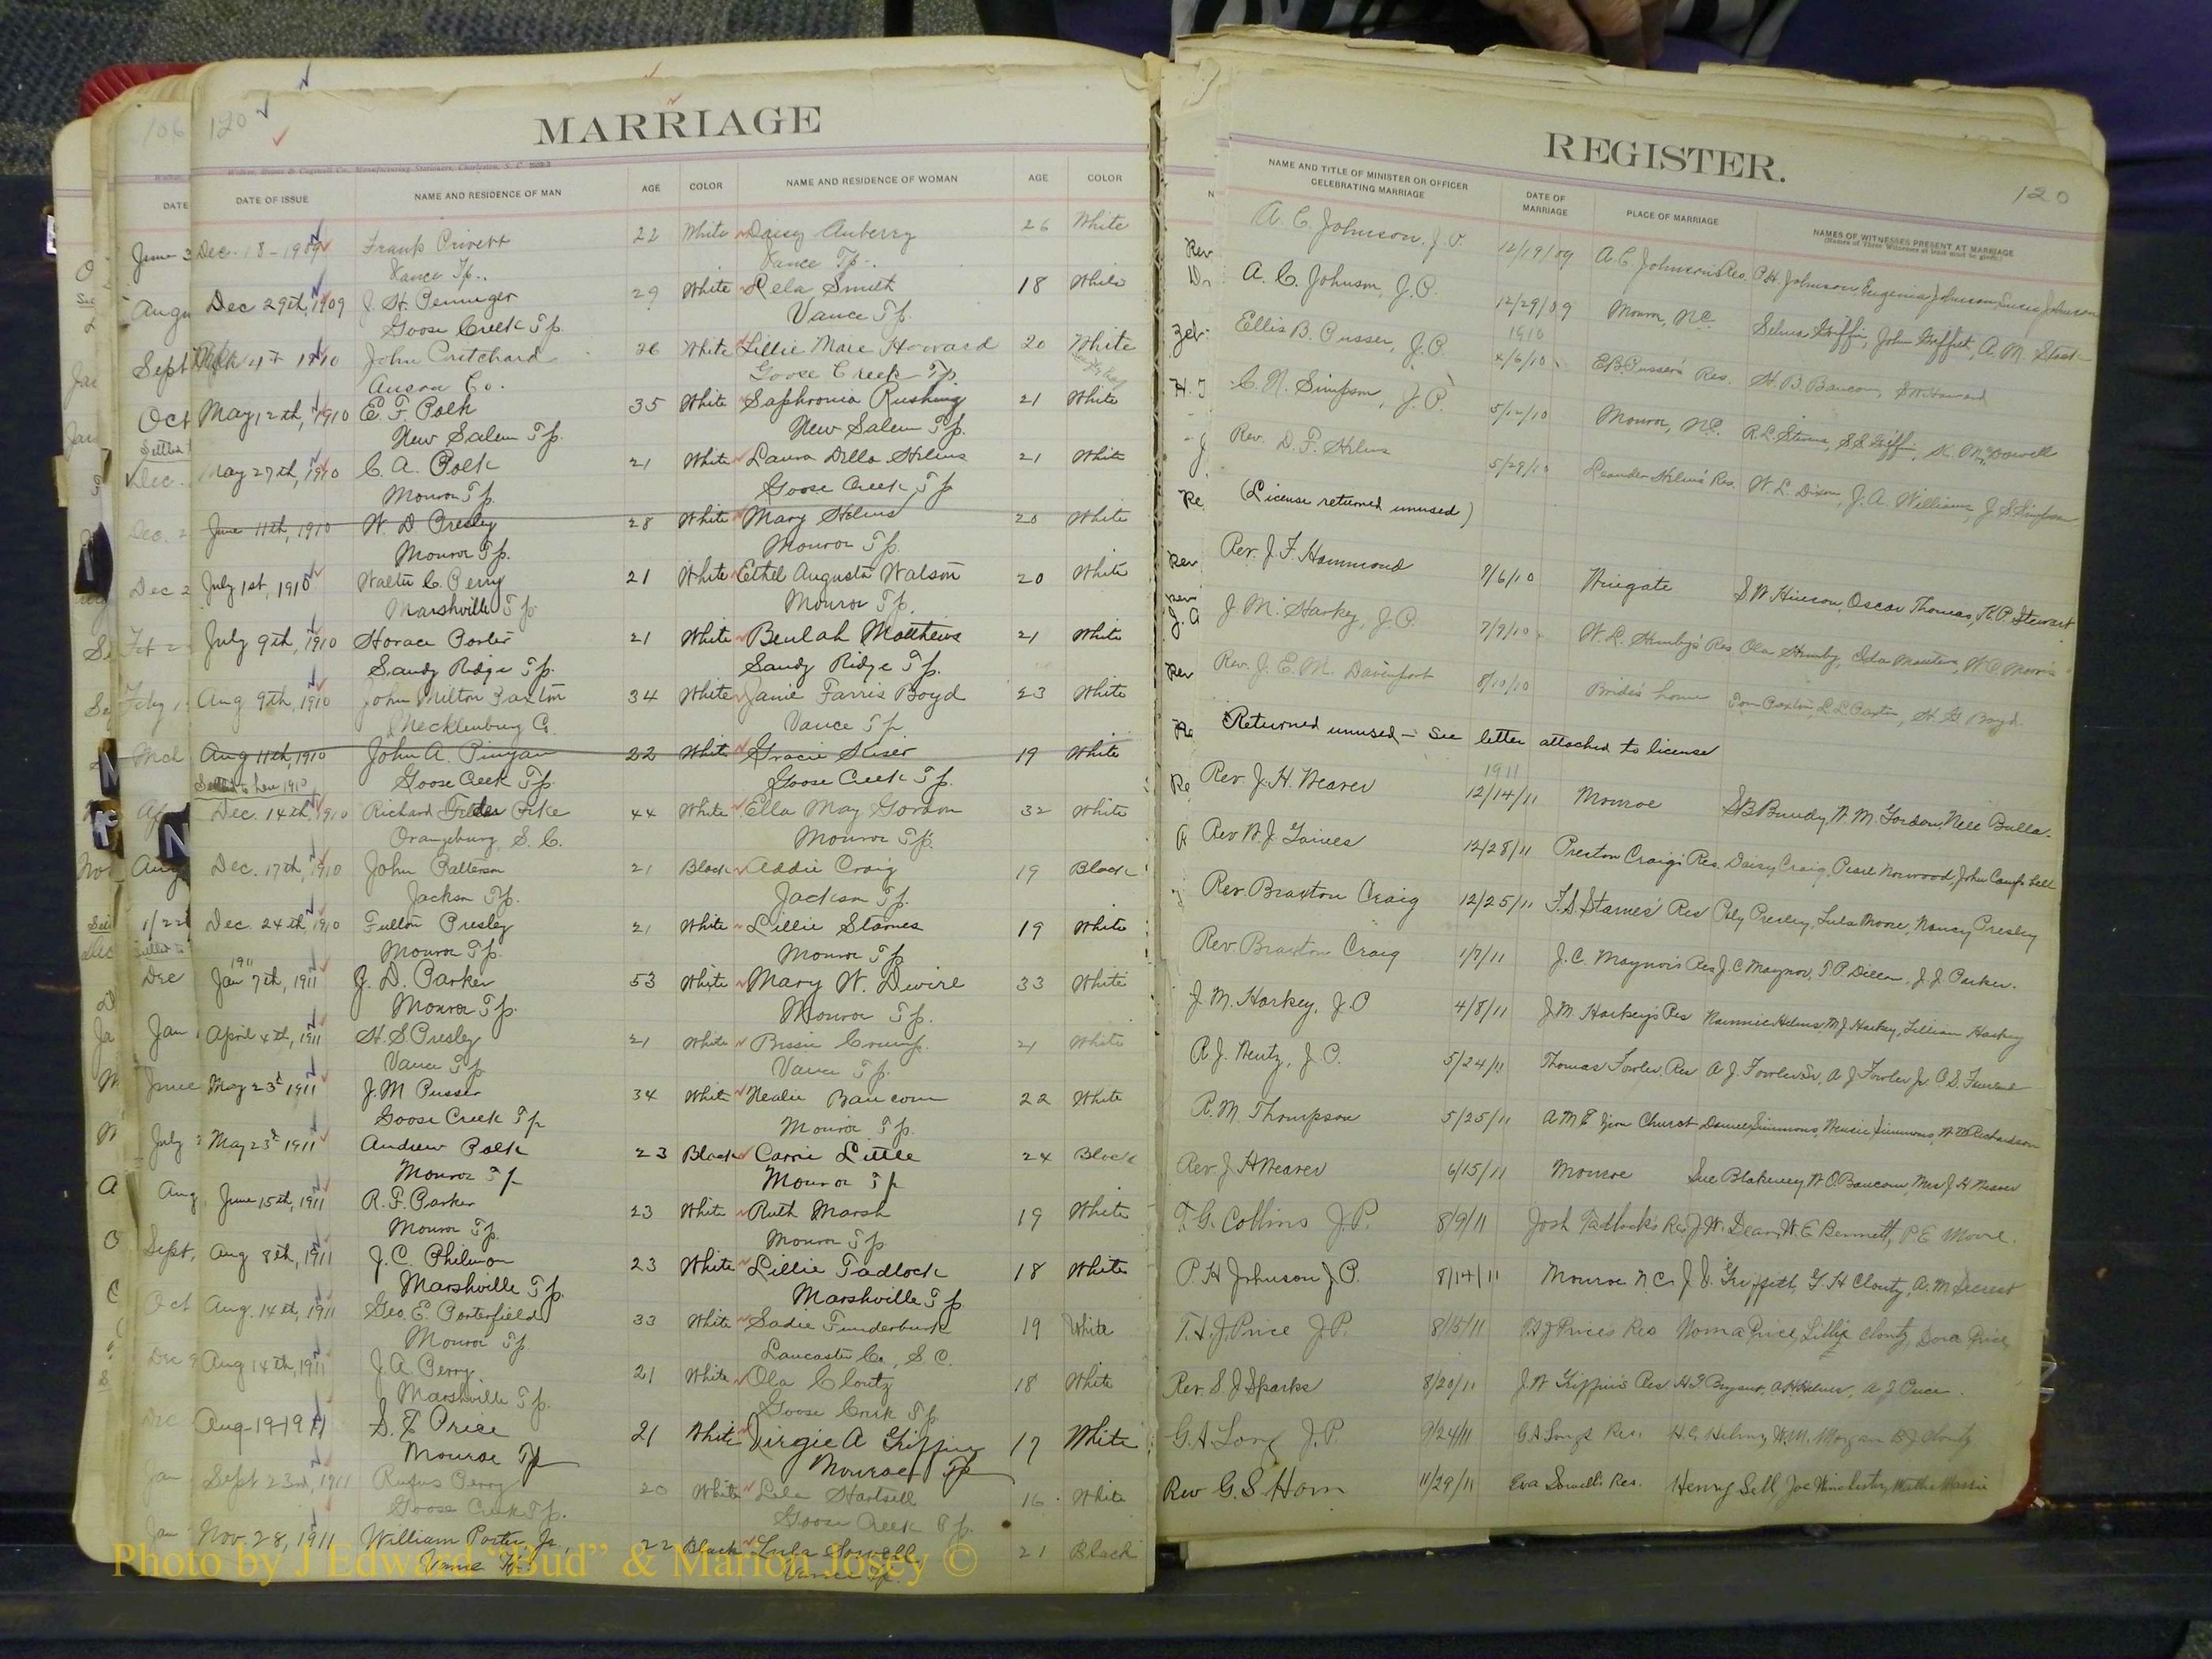 120
MARRIAGE
DATE OF ISSUE NAME AND RESIDENCE OF MAN AGE COLOR NAME AND RESIDENCE OF WOMAN AGE COLOR
Dec. 18 - 1909 Frank Privett 22 White Daisy Auberry 26 White
Vance Tp. Vance Tp.
Dec 29th, 1909 J. H. Peninger 29 White Rela Smith 18 White
Goose Creek Tp. Vance Tp.
1910 John Pritchard 26 White Lillie Mare Howard 20 White
Anson Co. Goose Creek Tp.
May 12th, 1910 E. F. Polk 35 White Saphronia Rushing 21 White
New Salem Tp. New Salem Tp.
May 27th, 1910 C. A. Polk 21 White Laura Della Helms 21 White
Monroe Tp. Goose Creek Tp
June 11th, 1910 W. D. Presley 28 White Mary Helms 20 White
Monroe Tp. Monroe Tp.
July 1st, 1910 Walter C. Perry 21 White Ethel Augusta Watson 20 White
Marshville Tp. Monroe Tp.
July 9th, 1910 Horace Porter 21 White Beulah Matthews 21 White
Sandy Ridge Tp. Sandy Ridge Tp.
Aug 9th, 1910 John Milton Paxton 34 White Janie Farris Boyd 23 White
Mecklenburg Co. Vance Tp
Aug 11th, 1910 John A. Pinyan 22 White Gracie Kiser 19 White
Settled to here 1910 Goose Creek Tp. Goose Creek Tp.
Dec. 14th, 1910 Richard Fike 44 White Ella May Gordon 32 White
Orangeburg, S. C. Monroe Tp.
Dec. 17th, 1910 John Patterson 21 Black Addie Craig 19 Black
Jackson Tp. Jackson Tp.
Dec. 24th, 1910 Fulton Presley 21 White Lillie Starnes 19 White
Monroe Tp. Monroe Tp
1911
Jan 7th, 1911 J. D. Parker 53 White Mary W. Dwire 33 White
Monroe Tp. Monroe Tp.
April 4th, 1911 H. S Presley 21 White Bessie Crump. 21 White
Vance Tp Vance Tp.
May 23d 1911 J. M Pusser 34 White Nealie Baucom 22 White
Goose Creek Tp Monroe Tp.
May 23d 1911 Andrew Polk 23 Black Carrie Little 24 Black
Monroe Tp Monroe Tp
June 15th, 1911 R. F. Parker 23 White Ruth Marsh 19 White
Monroe Tp. Monroe Tp
Aug 8th, 1911 J. C. Philmon 23 White Lillie Tadlock 18 White
Marshville Tp. Marshville Tp.
Aug. 14th, 1911 Geo. E. Porterfield 33 White Sadie Funderburk 19 White
Monroe Tp. Lancaster Co., S. C.
Aug 14th, 1911 J. A. Perry 21 White Ola Clontz 18 White
Marshville Tp. Goose Creek Tp
Aug-19-1911 S. F Price 21 White Virgie A Griffin 17 White
Monroe Tp Monroe Tp
Sept 23rd, 1911 Rufus Perry 20 White Lela Hartsell 16 White
Goose Creek Tp. Goose Creek Tp.
Nov 28, 1911 William Porter Jr, 22 Black Lula Sowell 21 Black
Vance Tp. Vance Tp.
REGISTER.
120
NAME AND TITLE OF MINISTER OR OFFICER CELEBRATING MARRIAGE DATE OF MARRIAGE PLACE OF MARRIAGE NAMES OF WITNESSES PRESENT AT MARRIAGE
(Names of Three Witnesses at least must be given.)
A. C. Johnson, J. P. 12/19/09 A. C. Johnson's Res. P. H. Johnson, Eugenia Johnson, Susie Johnson
A. C. Johnson, J. P. 12/29/09 Monroe, N.C. Selma Griffin, John Griffith, A. M. Stack
1910
Ellis B. Pusser, J. P. 4/6/10 E. B. Pusser's Res. H. B. Baucom, Howard
C. N. Simpson, J. P. 5/12/10 Monroe, N.C. R. L. Stevens, S. S. Griffin, McDowell
Rev. D. F. Helms 5/29/10 Leander Helms' Res. W. L. Dixon, J. A. Williams, J. S Simpson
(License returned unused)
Rev. J. F. Hammond 7/6/10 Wingate S. W. Hinson, Oscar Thomas, K. P. Stewart
J. M. Harkey, J. P. 7/9/10 W. R. Hornby's Res Ola Hornby, W. C. Morris
Rev. J. E. M. Davenport 8/10/10 Bride's home Tom Paxton, L. L. Paxton, H. G. Boyd.
Returned unused — See letter attached to license
1911
Rev. J. H. Weaver 12/14/11 Monroe S B Bundy, W. M. Gordon, Nell Bulla.
Rev W. J. Gaines 12/28/11 Preston Craig's Res. Daisy Craig, Pearl Norwood, John Campbell
Rev. Braxton Craig 12/25/11 T. S. Starnes' Res Coly Presley, Lula Moore, Nancy Presley
Rev. Braxton Craig 1/7/11 J. C. Maynor's Res J. C Maynor, T. P. Dillon, J. J. Parker.
J. M. Harkey, J. P 4/8/11 J. M. Harkey's Res Nannie Helms M. J Harkey, Lillian Harkey
R. J. Wentz, J. P. 5/24/11 Thomas Fowler, Res A J. Fowler Sr, A J Fowler Jr.
R. M. Thompson 5/25/11 A M E Zion Church Daniel Simmons, Simmons, Richardson
Rev J. H Weaver 6/15/11 Monroe Sue Blakeney W. O. Baucom, Mrs J. H Weaver
T. G. Collins J. P. 8/9/11 Josh Tadlock's Res J. W. Dean, W. E Bennett, P. E Moore.
P. H Johnson J. P. 8/14/11 Monroe N. C. J. D. Griffith, G. H Clontz, A. M Secrest
T. H. J. Price J. P. 8/15/11 T. H J Price's Res Noma Price, Lillie Clontz, Dora Price
Rev. S. J Sparks 8/20/11 J. W Griffin's Res H. F. Bryant, A. H Helms, A J Price.
G. A Long J. P. 9/24/11 G. A Long's Res. H. G. Helms, W. M. Morgan B. J Clontz
Rev G. S Horn 11/29/11 Eva Sowell's Res. Henry Sell, Joe Winchester, Mattie Massie
Photo by J Edward "Bud" & Marion Josey ©